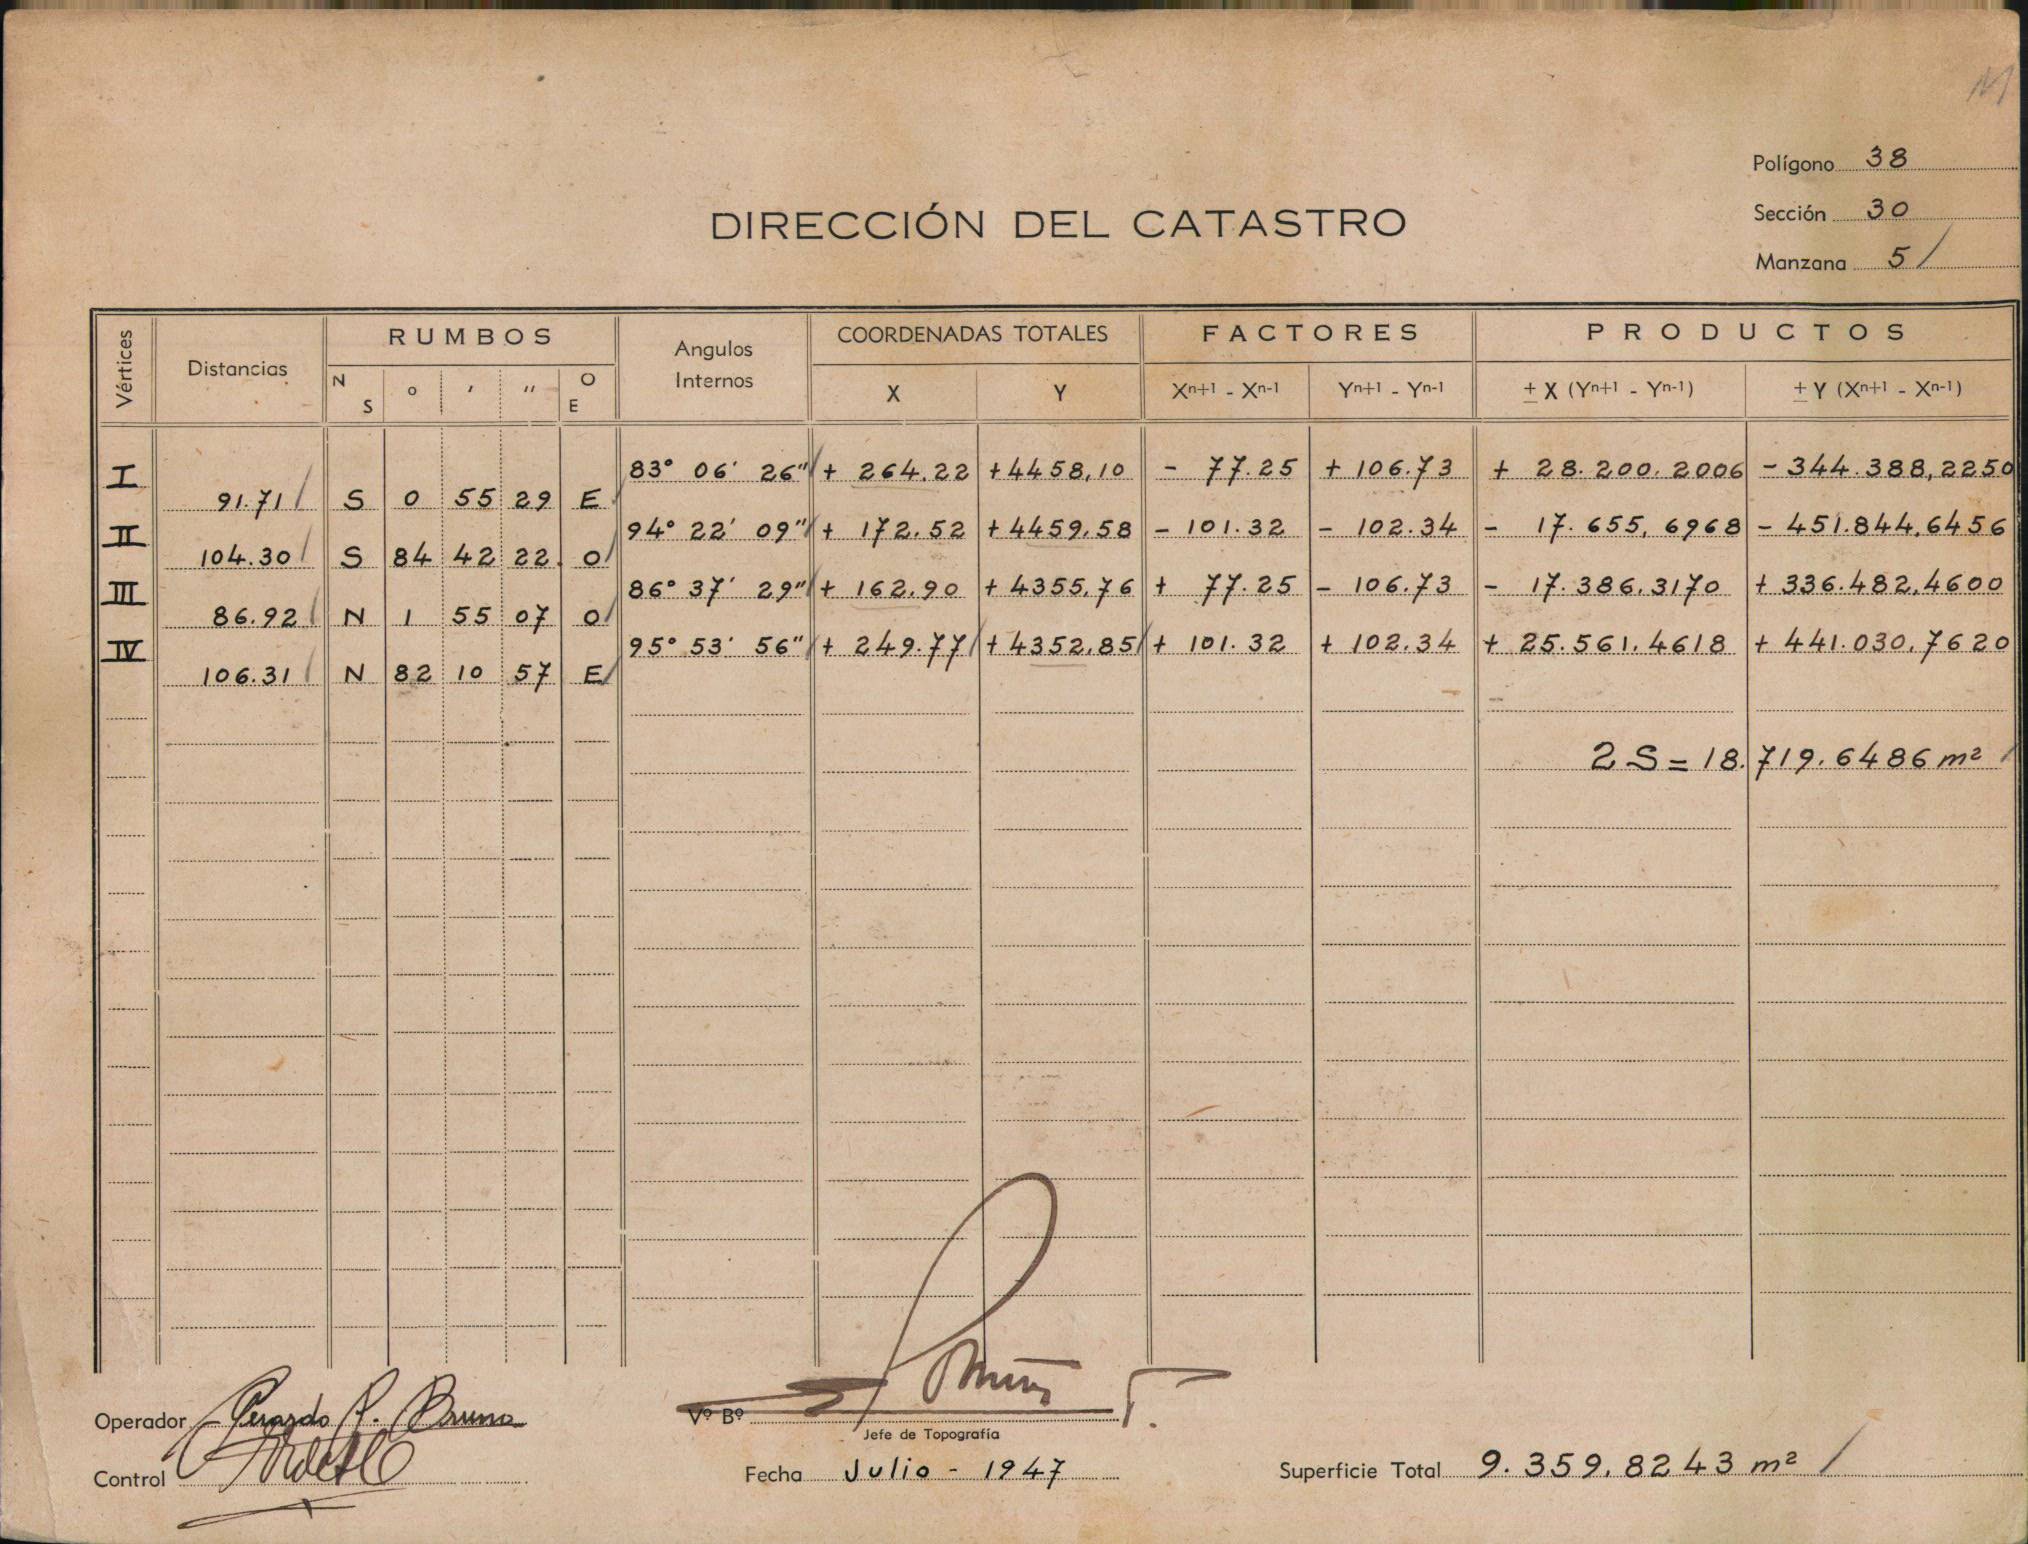 Polígono 38
Sección 30
Manzana 5
DIRECCIÓN DEL CATASTRO
Vértices Distancias RUMBOS Angulos Internos COORDENADAS TOTALES FACTORES PRODUCTOS
N S o ′ ″ O E X Y Xn+1 - Xn-1 Yn+1 - Yn-1 ± X (Yn+1 - Yn-1) ± Y (Xn+1 - Xn-1)
I 83° 06′ 26″ + 264.22 +4458,10 - 77.25 + 106.73 + 28.200.2006 - 344.388,2250
91.71 S 0 55 29 E
II 94° 22′ 09″ + 172.52 +4459.58 - 101.32 - 102.34 - 17.655,6968 - 451.844,6456
104.30 S 84 42 22 O
III 86° 37′ 29″ + 162.90 + 4355,76 + 77.25 - 106.73 - 17.386,3170 + 336.482,4600
86.92 N 1 55 07 O
IV 95° 53′ 56″ + 249.77 + 4352,85 + 101.32 + 102.34 + 25.561.4618 + 441.030,7620
106.31 N 82 10 57 E
2 S = 18.719.6486 m²
Operador Gerardo P. Bruno
Vº Bº
Jefe de Topografía
Control
Fecha Julio - 1947
Superficie Total 9.359,8243 m²